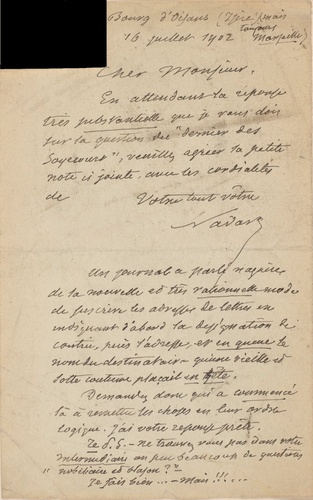 Bourg d'Oisans (Isère) mais
toujours
Marseille)
16 juillet 1902
Cher Monsieur,
En attendant la réponse
très substantielle que je vous dois
sur la question des "dernier des
Soyecourt", veuillez agréer la petite
note ci jointe, avec les cordialités
de Votre tout vôtre
Nadar
Un journal a parlé naguère
de la nouvelle et très rationnelle mode
de suscrire les adresses de lettres en
indiquant d'abord la désignation de
contrée, puis l'adresse, et en queue le
nom du destinataire qu'une vieille et
sotte coutume plaçait en tête.
Demandez donc qui a commencé
là à remettre les choses en leur ordre
logique. J'ai votre réponse prête.
Le P.S. - Ne trouvez vous pas dans votre
Intermédiaire un peu beaucoup de questions
"nobiliaire et blason"?
Je sais bien ... - Mais !!! ...